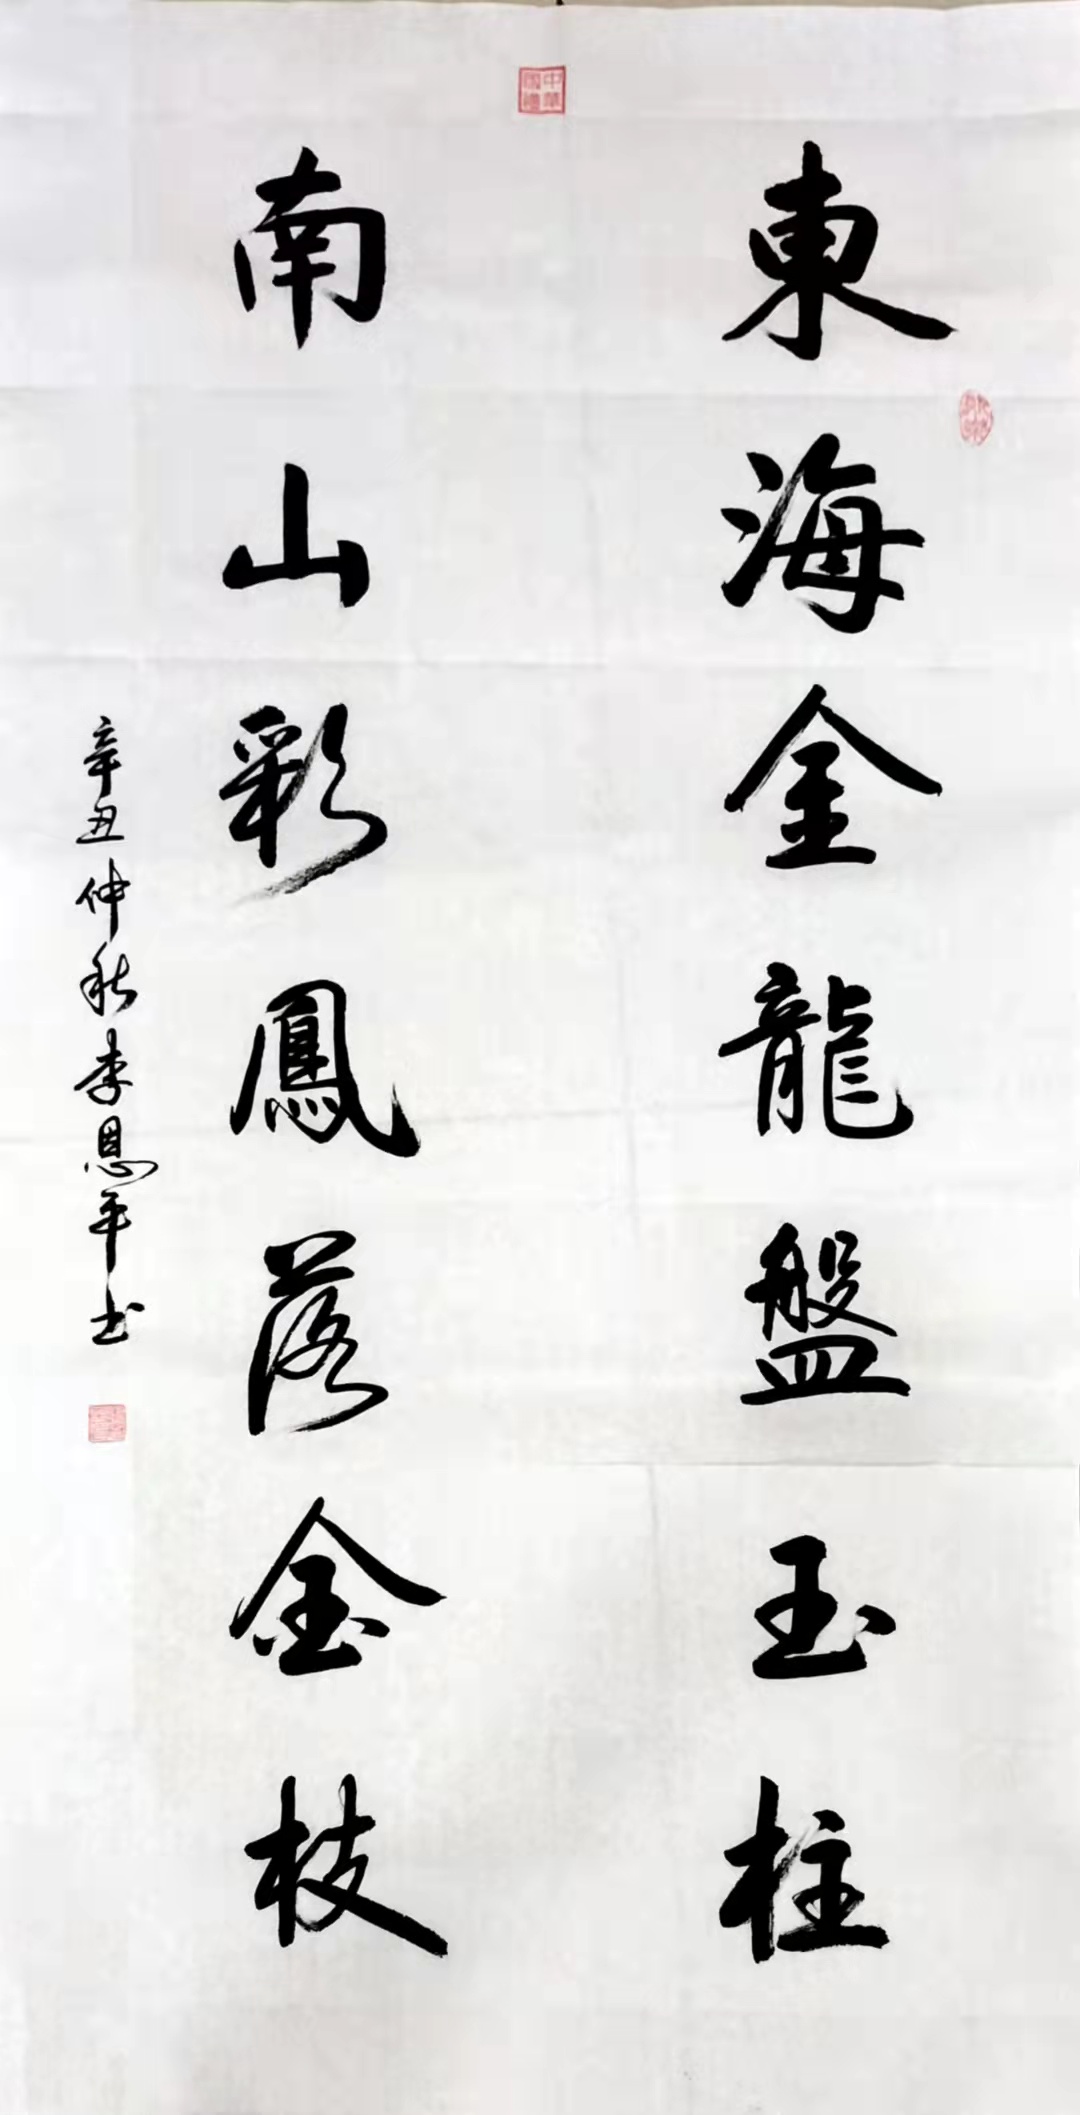 東海金龍盤玉柱
南山彩鳳落金枝
辛丑仲秋李恩平书